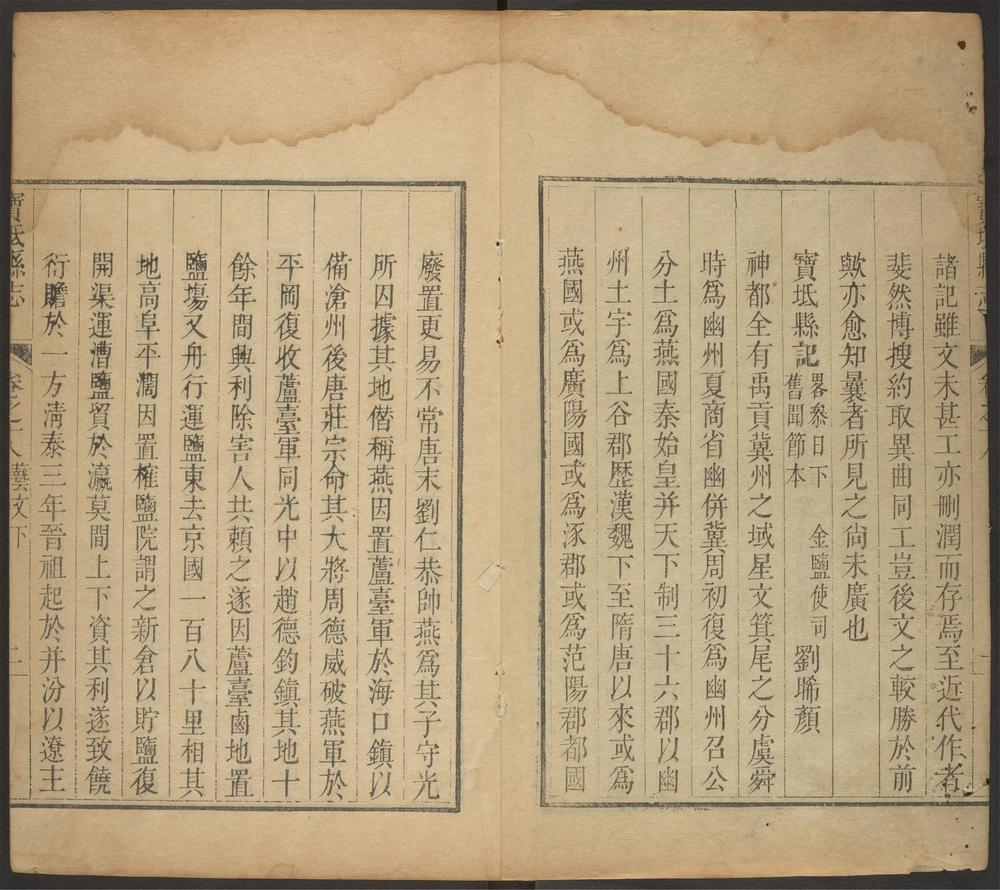 諸記雖文未甚工亦刪潤而存焉至近代作者
斐然博搜約取異曲同工豈後文之較勝於前
歟亦愈知曩者所見之尙未廣也
寶坻縣記畧叅日下舊聞節本 金鹽使司 劉晞顏
神都全有禹貢冀州之域星文箕尾之分虞舜
時爲幽州夏商省幽併冀周初復爲幽州召公
分土爲燕國秦始皇并天下制三十六郡以幽
州土宇爲上谷郡歷漢魏下至隋唐以來或爲
燕國或爲廣陽國或爲涿郡或爲范陽郡都國
廢置更易不常唐末劉仁恭帥燕爲其子守光
所囚據其地僭稱燕因置蘆臺軍於海口鎮以
備滄州後唐莊宗命其大將周德威破燕軍於
平岡復收蘆臺軍同光中以趙德鈞鎮其地十
餘年間興利除害人共賴之遂因蘆臺鹵地置
鹽塲又舟行運鹽東去京國一百八十里相其
地高阜平濶因置榷鹽院謂之新倉以貯鹽復
開渠運漕鹽貿於瀛莫間上下資其利遂致饒
衍贍於一方淸泰三年晉祖起於并汾以遼主
寶坻縣志 卷之 藝文下 二